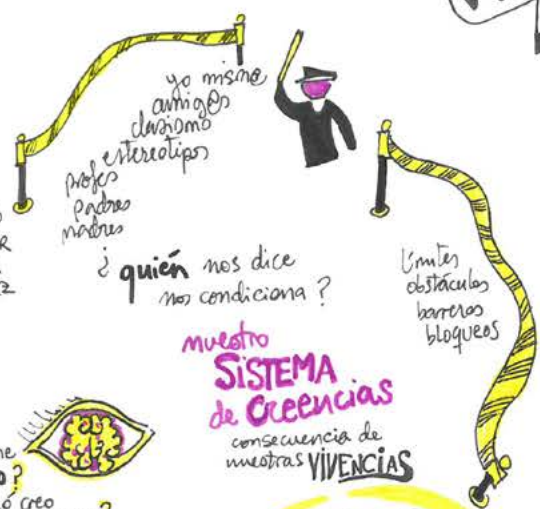 yo mism@
amig@s
clasismo
estereotipos
profes
padres
madres
¿quién nos dice
nos condiciona?
límites
obstáculos
barreras
bloqueos
nuestro
SISTEMA
de Creencias
consecuencia de
nuestras VIVENCIAS
creo